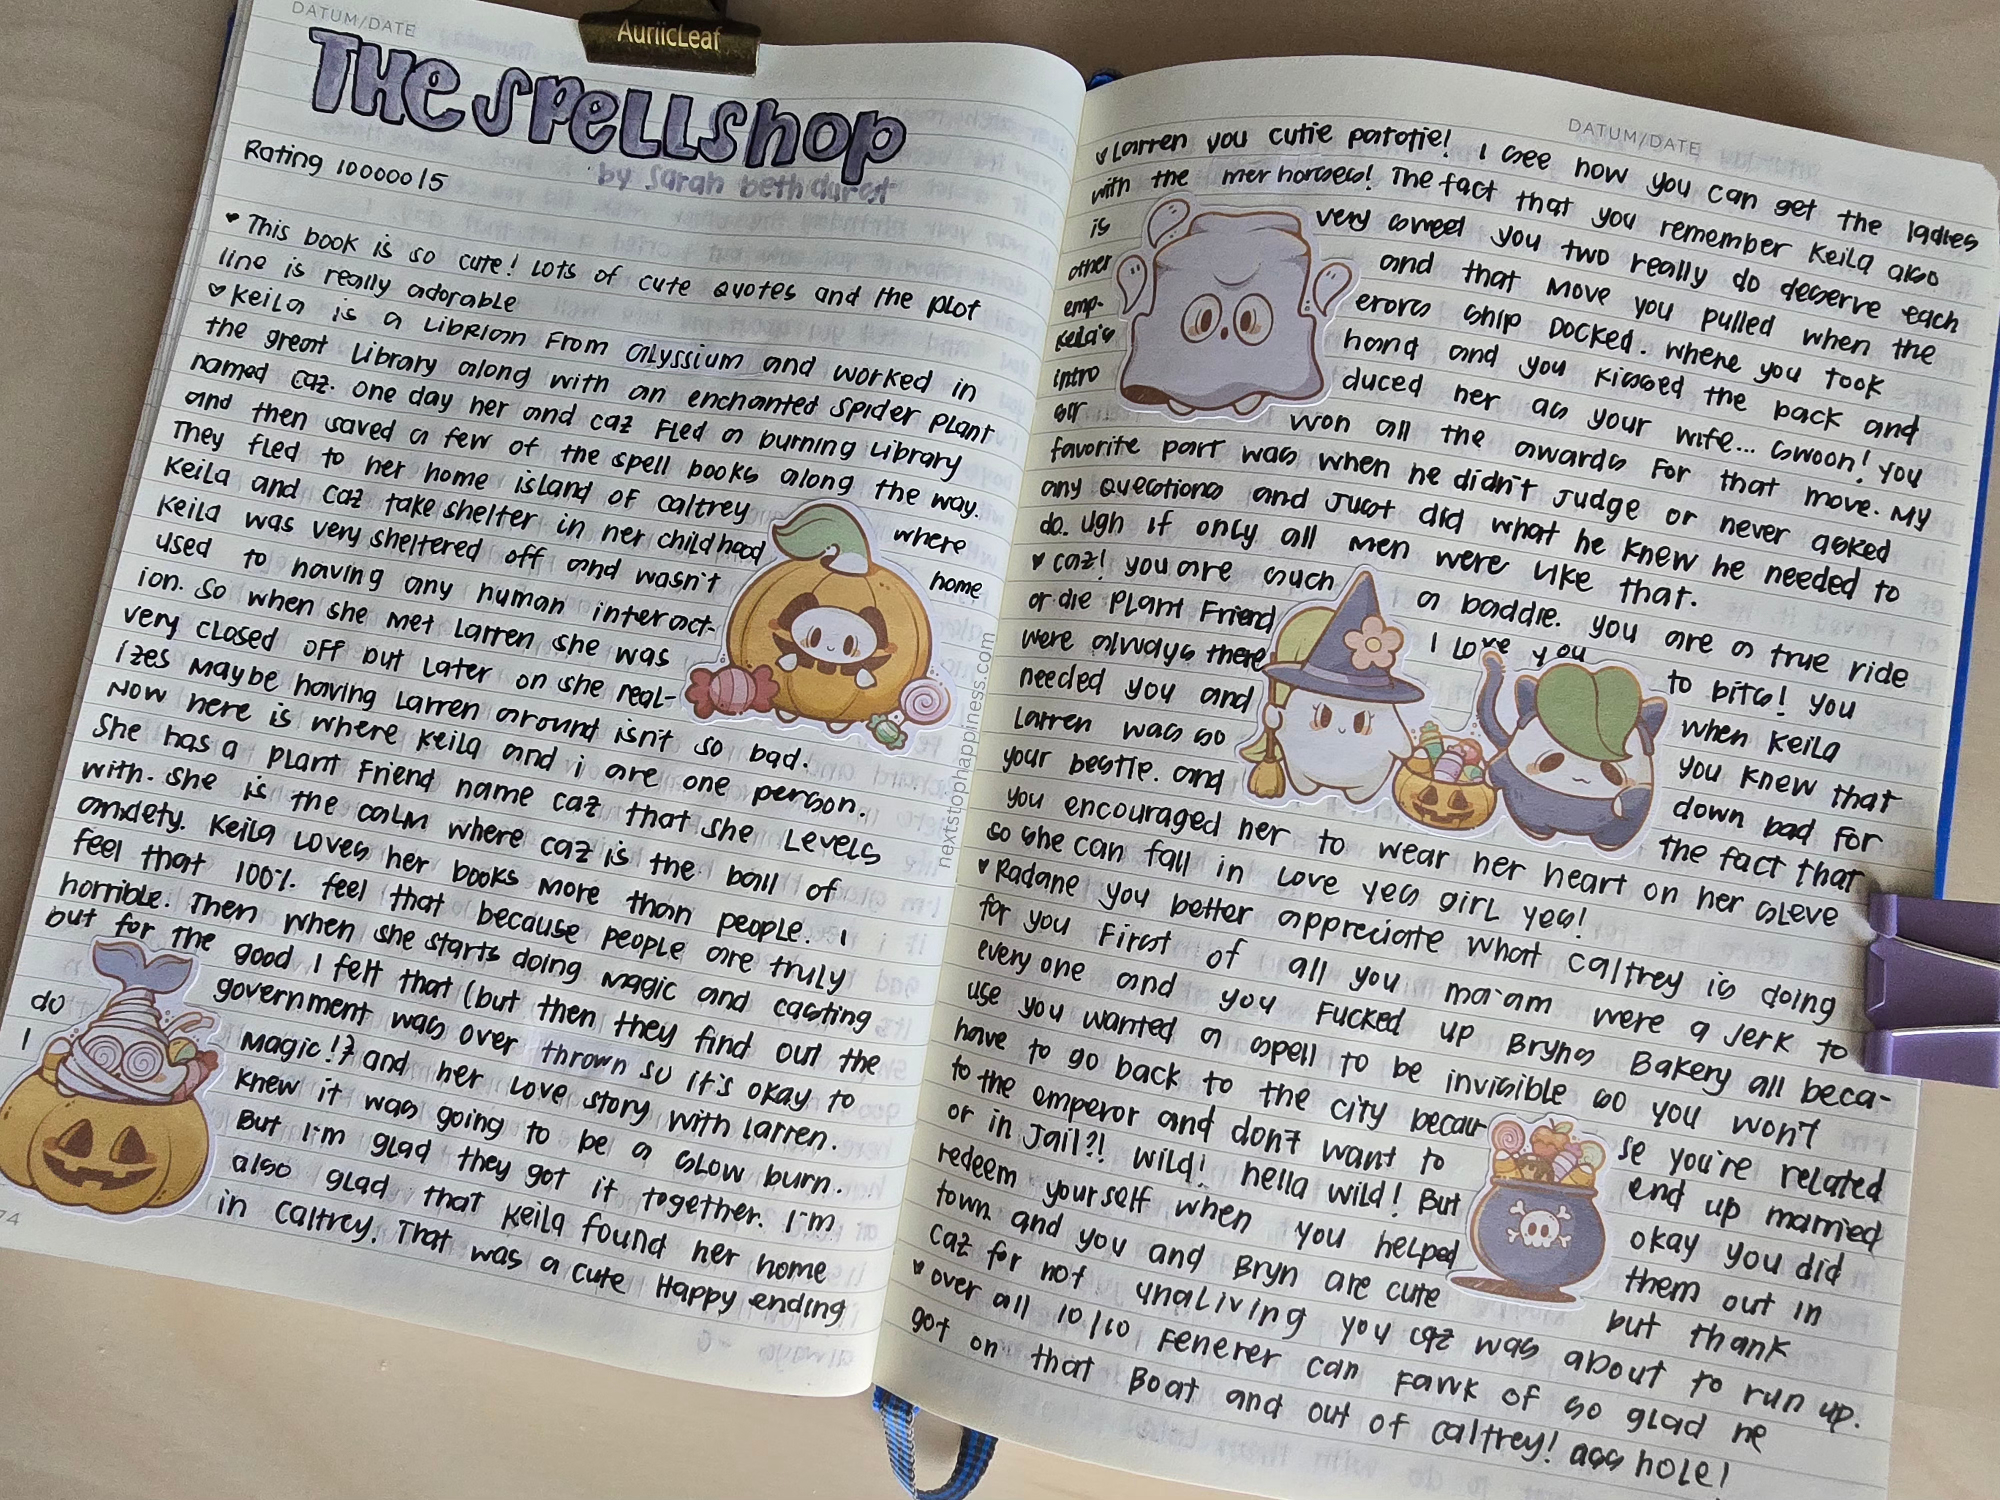 DATUM/DATE
AuriicLeaf
THE SPELLSHOP
by Sarah beth durst
Rating 1000000/5
♥ This book is so cute! Lots of cute quotes and the plot
line is really adorable
♥ Keila is a Librian From alyssium and worked in
the great Library along with an enchanted Spider Plant
named caz. One day her and caz Fled a burning Library
and then saved a few of the spell books along the way.
They fled to her home island of caltrey where
Keila and caz take shelter in her childhood home
Keila was very sheltered off and wasn't
used to having any human interact-
ion. So when she met Larren she was
very closed off but Later on she real-
izes Maybe having Larren around isn't so bad.
Now here is where Keila and i are one person.
She has a Plant Friend name caz that she Levels
with. She is the calm where caz is the ball of
anxiety. Keila Loves her books more than people. I
feel that 100%. feel that because people are truly
horrible. Then when she starts doing magic and casting
but for the good I felt that (but then they find out the
government was over thrown so it's okay to
do magic!} and her love story with Larren.
I knew it was going to be a slow burn.
But I'm glad they got it together. I'm
also glad that Keila found her home
in caltrey. That was a cute Happy ending
74
nextstophappiness.com
DATUM/DATE
♥ Larren you cutie patotie! I see how you can get the ladies
with the mer horses! The fact that you remember Keila also
is very sweet you two really do deserve each
other and that move you pulled when the
emp-erors ship Docked. Where you took
Keila's hand and you kissed the back and
introduced her as your wife... swoon! You
sir won all the awards for that move. My
favorite part was when he didn't judge or never asked
any questions and Just did what he knew he needed to
do. Ugh if only all men were Like that.
♥ Caz! you are such a baddie. You are a true ride
or die Plant Friend I Love you to bits! You
were always there when Keila
needed you and you knew that
Larren was so down bad for
your bestie. and the fact that
you encouraged her to wear her heart on her sleve
so she can fall in Love yes girl yes!
♥ Radane you better appreciate what caltrey is doing
for you First of all you ma'am were a jerk to
every one and you Fucked up Bryns Bakery all beca-
use you wanted a spell to be invisible so you won't
have to go back to the city becau se you're related
to the emperor and don't want to end up married
or in Jail?! Wild! hella wild! But okay you did
redeem yourself when you helped them out in
town. and you and Bryn are cute but thank
Caz for not unaliving you caz was about to run up.
♥ over all 10/10 Fenerer can Fawk of so glad he
got on that Boat and out of caltrey! ass hole!